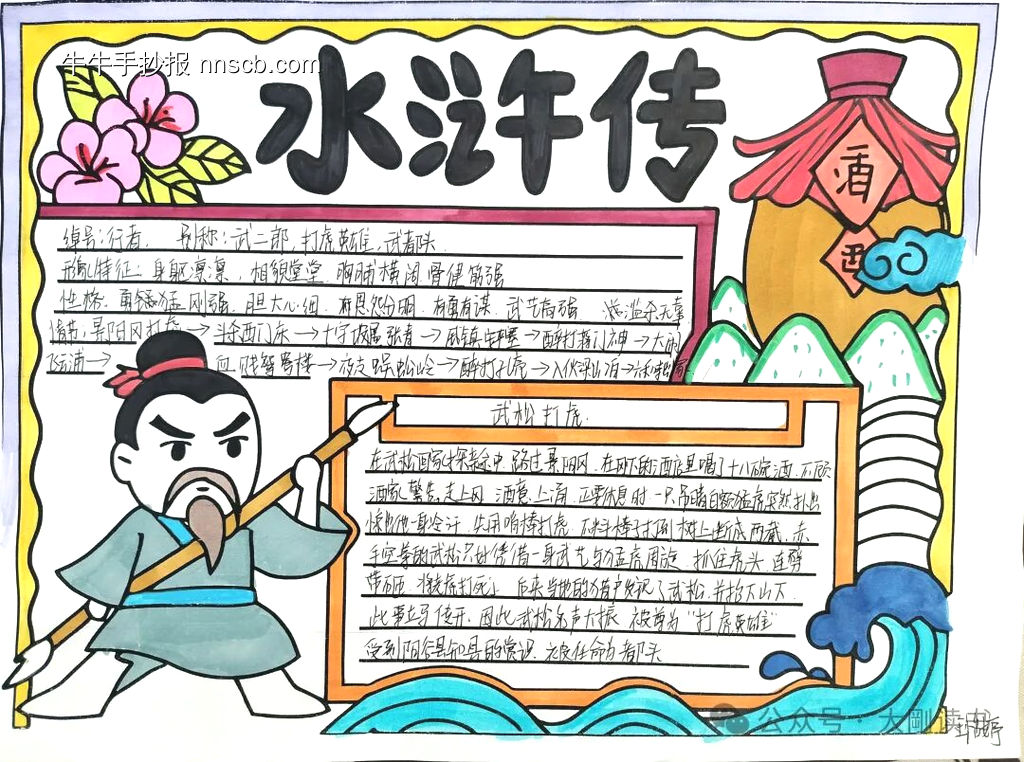 牛牛手抄报 nnscb.com
水浒传
酒
酒
绰号:行者. 别称:武二郎,打虎英雄,武都头.
形象特征:身躯凛凛,相貌堂堂,胸脯横阔,骨健筋强
性格:勇猛刚强,胆大心细,有恩怨分明,有勇有谋,武艺高强 滥杀无辜
情节:景阳冈打虎→斗杀西门庆→十字坡遇张青→安平寨→醉打蒋门神→大闹
飞云浦→血溅鸳鸯楼→夜走蜈蚣岭→醉打孔亮→入伙
武松打虎.
在武松回家探亲途中,路过景阳冈.在冈下的酒店里喝了十八碗酒.不顾
酒家警告,走上冈 酒意上涌,正要休息时,一只吊睛白额猛虎突然扑出
惊出他一身冷汗,先用哨棒打虎,不料棒子打到树上断成两截,赤
手空拳的武松只好凭借一身武艺与猛虎周旋,抓住虎头,连劈
带砸,将老虎打死,后来当地的猎户发现了武松,并抬下山下
此事立马传开,因此武松名声大振,被尊为"打虎英雄"
受到阳谷县知县的赏识,被任命为都头
公众号·大刚读书